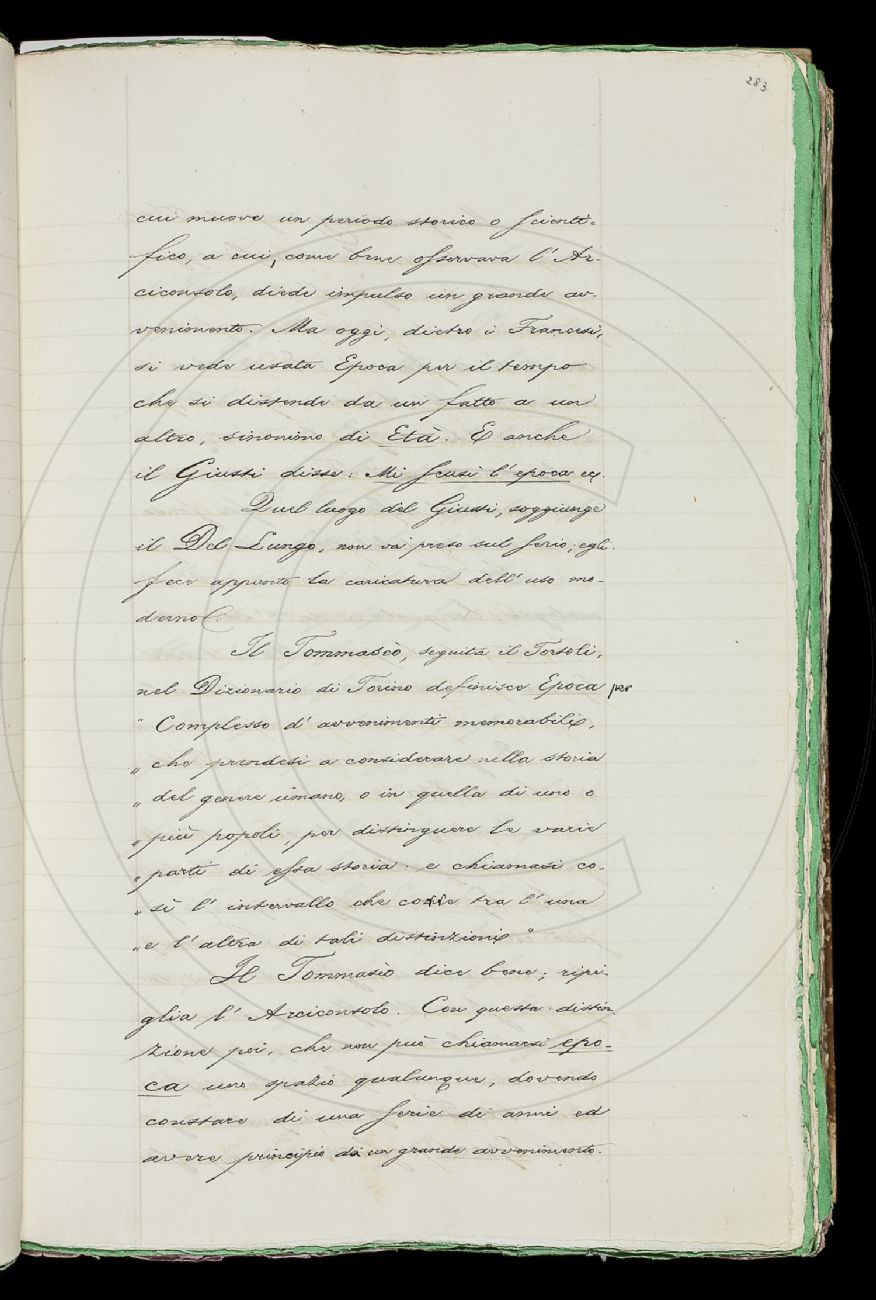 283
cui muove un periodo storico o scienti-
fico, a cui, come bene osservava l'Ar-
ciconsolo, diede impulso un grande av-
venimento. Ma oggi, dietro i Francesi,
si vede usata Epoca per il tempo
che si distende da un fatto a un
altro, sinonimo di Età. E anche
il Giusti disse: Mi scusi l'epoca ec.
Quel luogo del Giusti, soggiunge
il Del Lungo, non va preso sul serio; egli
fece appunto la caricatura dell'uso mo-
derno.
Il Tommasèo, seguita il Tortoli,
nel Dizionario di Torino definisce Epoca per
" Complesso d'avvenimenti memorabili,
„ che prendesi a considerare nella storia
„ del genere umano, o in quella di uno o
„ più popoli, per distinguere le varie
„ parti di essa storia: e chiamasi co-
„ sì l'intervallo che corre tra l'una
„ e l'altra di tali distinzioni "
Il Tommasèo dice bene; ripi-
glia l'Arciconsolo. Con questa distin-
zione poi, che non può chiamarsi epo-
ca uno spazio qualunque, dovendo
constare di una serie di anni ed
avere principio da un grande avvenimento.